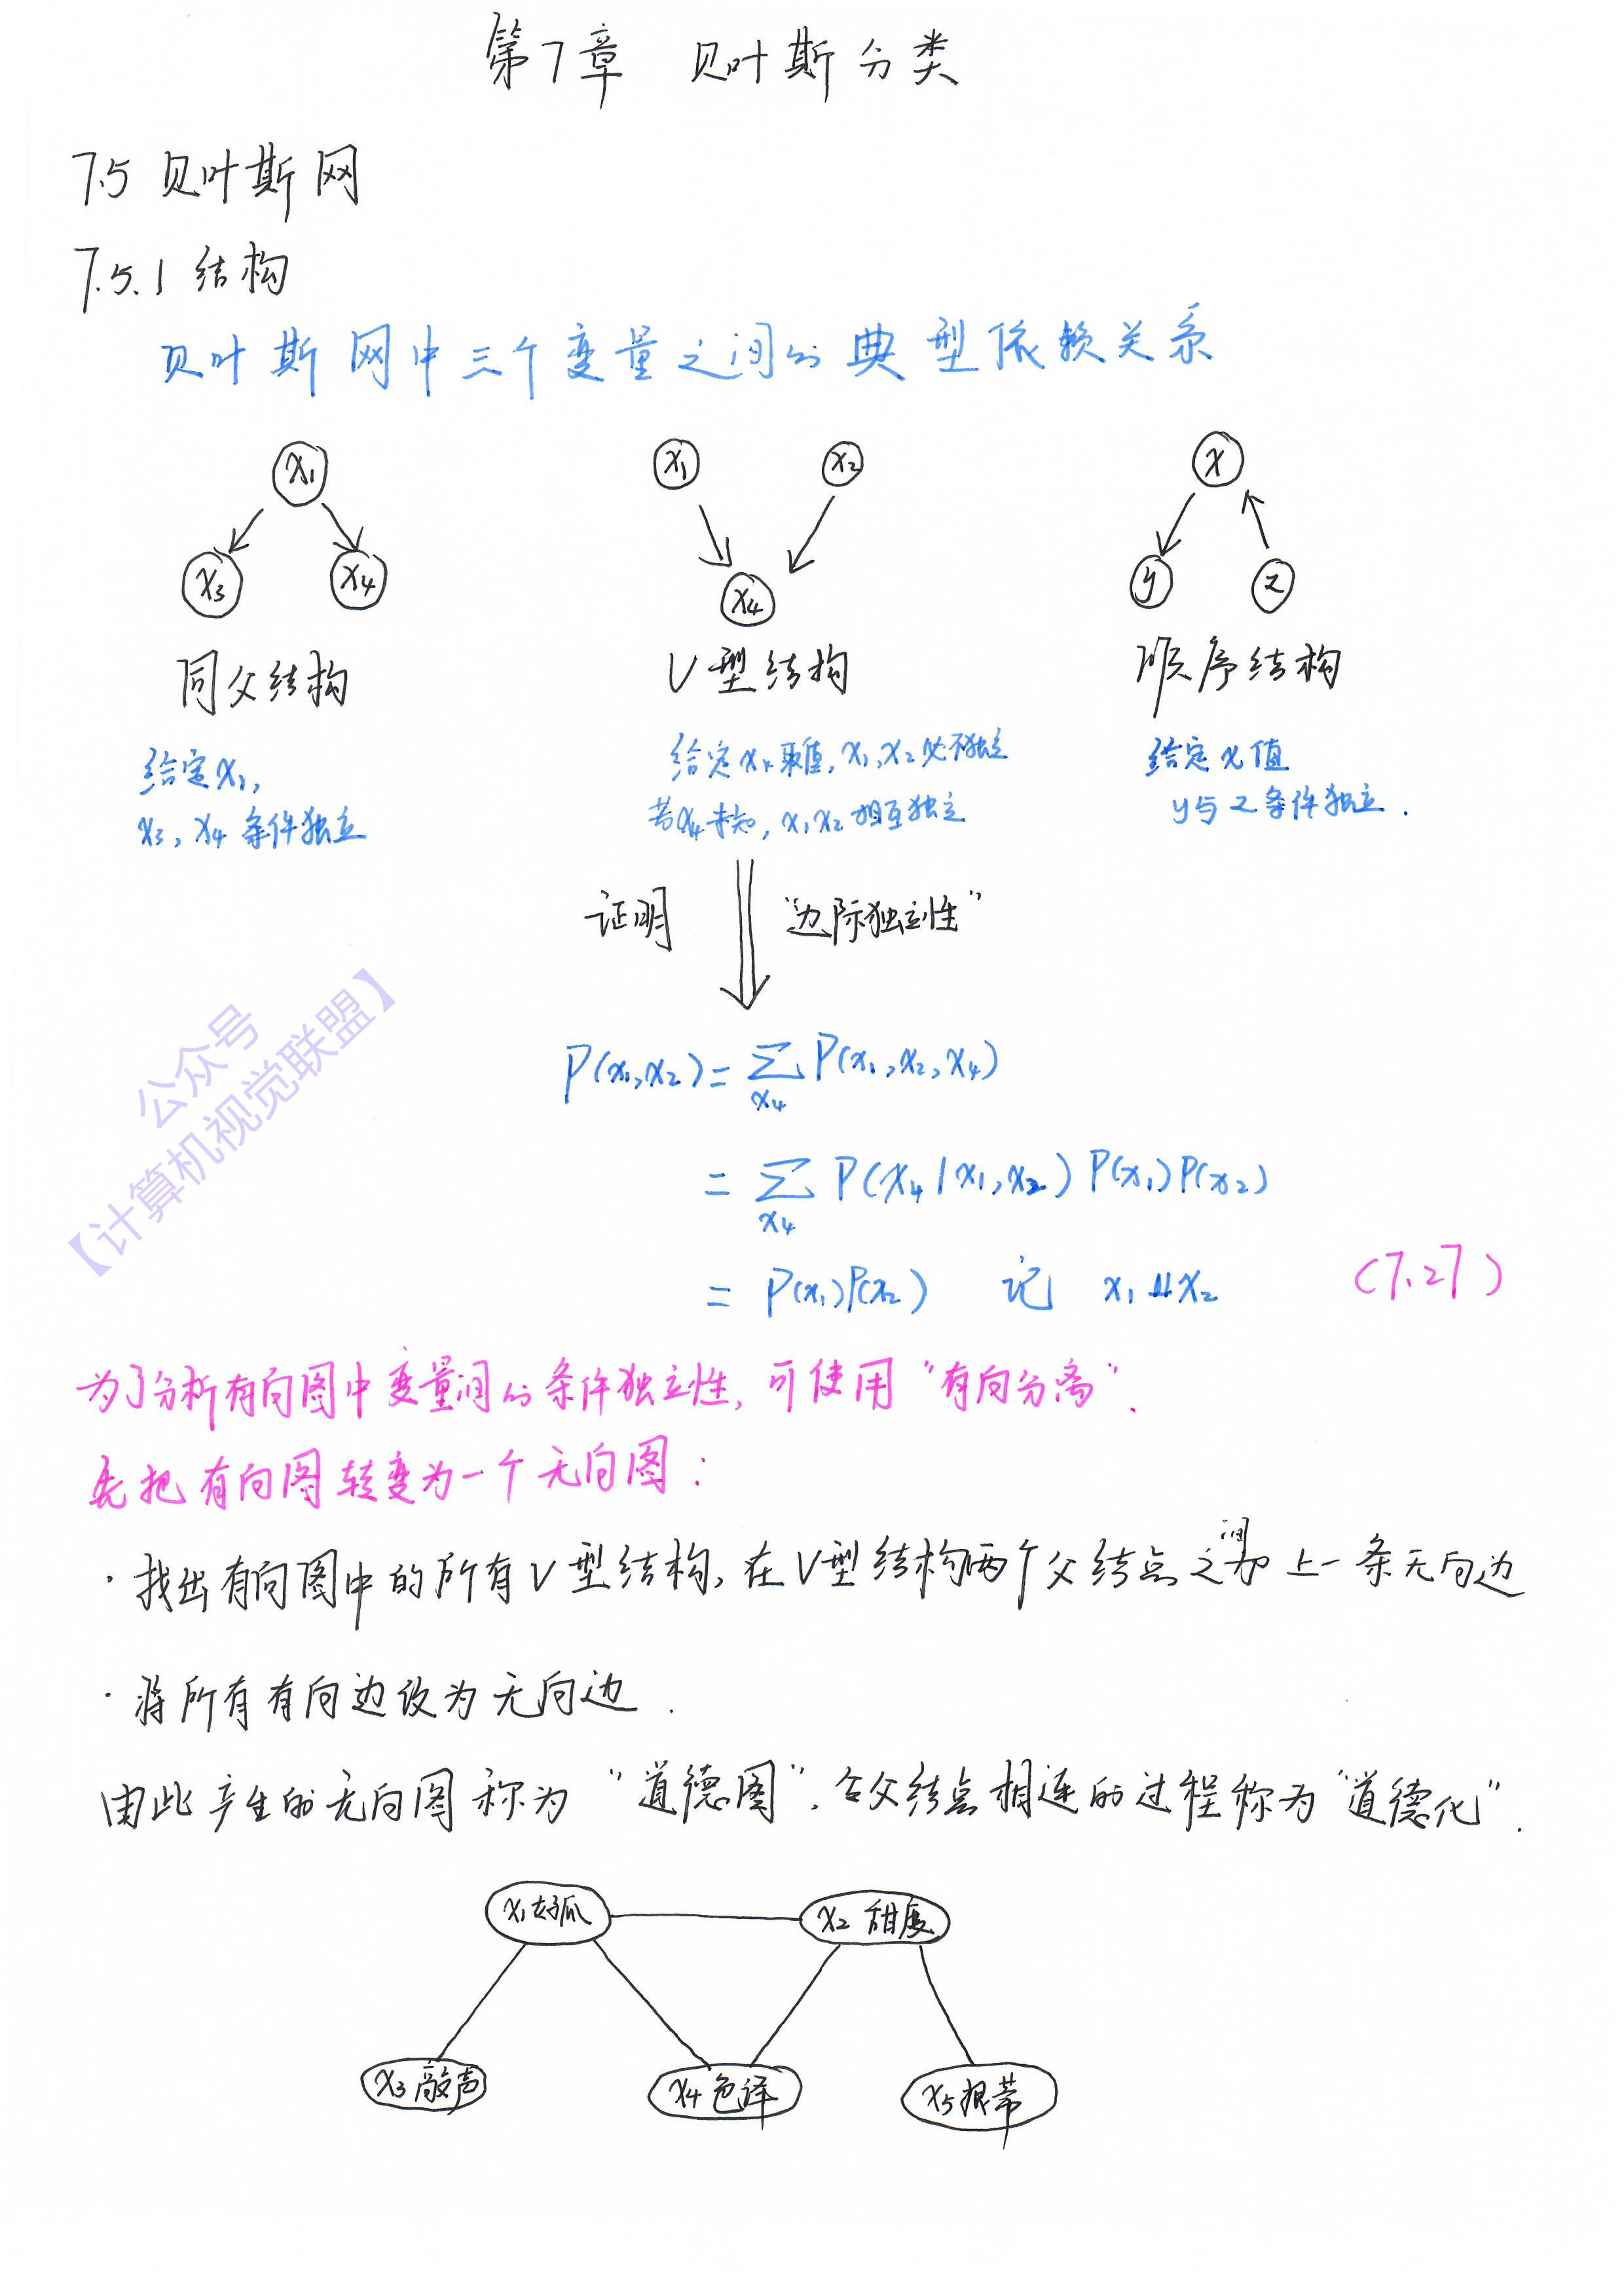 第7章 贝叶斯分类
7.5 贝叶斯网
7.5.1 结构
贝叶斯网中三个变量之间的典型依赖关系
x₁ x₁ x₂ x
x₃ x₄ x₄ y z
同父结构 V型结构 顺序结构
给定x₁, 给定x₄取值, x₁, x₂必不独立 给定x值
x₃, x₄条件独立 若x₄未知, x₁x₂相互独立 y与z条件独立.
证明 "边际独立性"
P(x₁,x₂) = ∑x₄ P(x₁,x₂,x₄)
= ∑x₄ P(x₄|x₁,x₂) P(x₁)P(x₂)
= P(x₁)P(x₂) 记 x₁⫫x₂ (7.27)
公众号
【计算机视觉联盟】
为了分析有向图中变量间的条件独立性, 可使用"有向分离".
先把有向图转变为一个无向图:
· 找出有向图中的所有V型结构, 在V型结构两个父结点之间加上一条无向边
· 将所有有向边改为无向边.
由此产生的无向图称为"道德图", 令父结点相连的过程称为"道德化".
x₁好瓜 x₂甜度
x₃敲声 x₄色泽 x₅根蒂